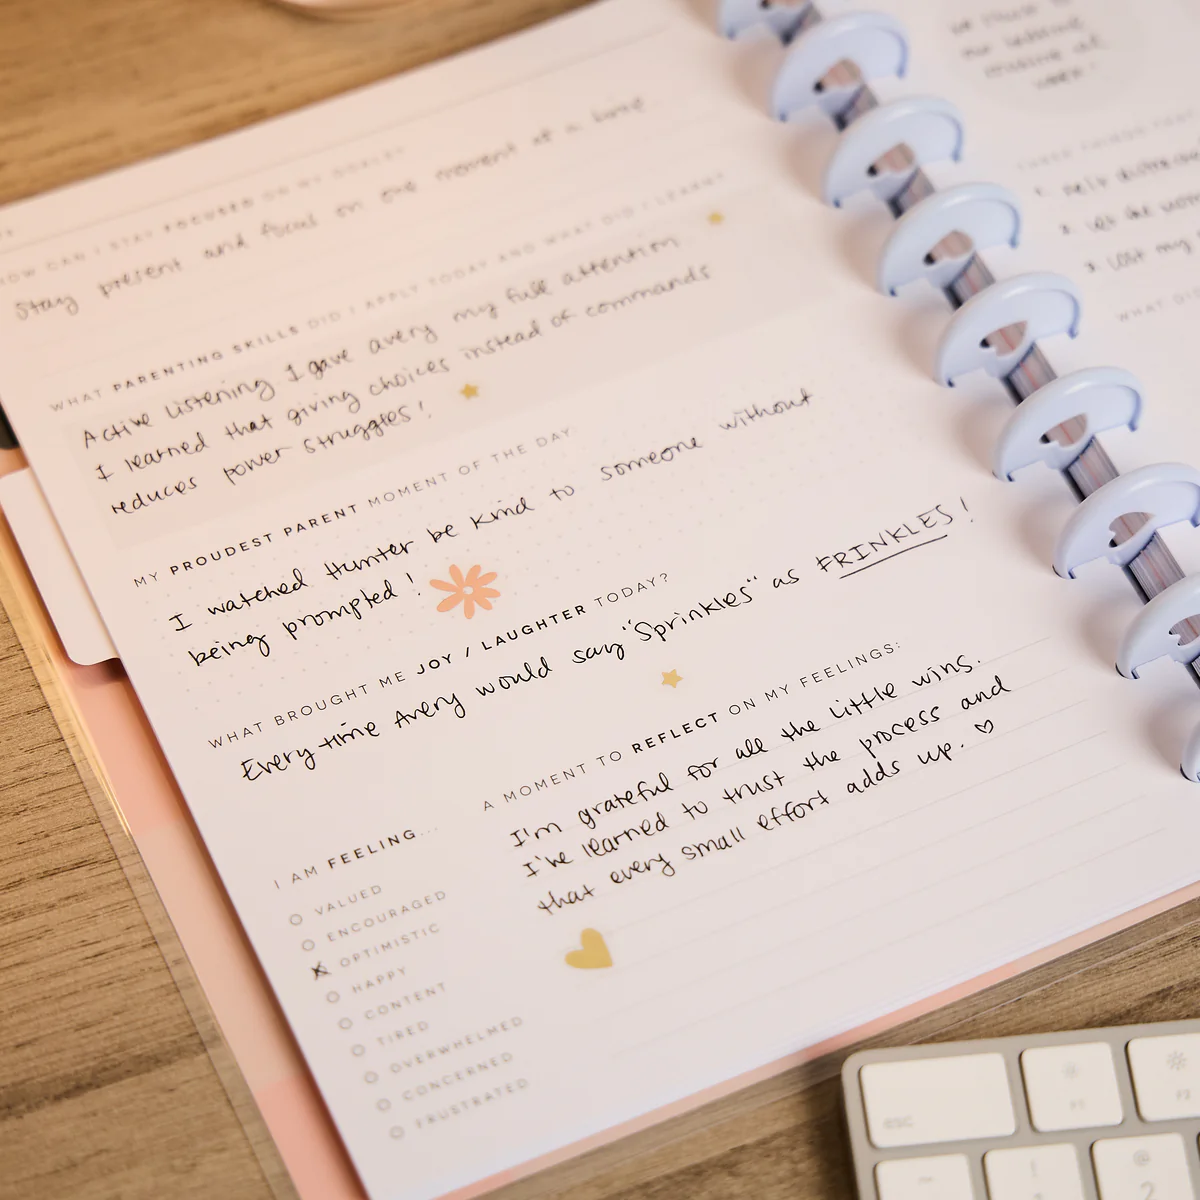 HOW CAN I STAY FOCUSED ON MY GOALS?
Stay present and focus on one moment at a time.
WHAT PARENTING SKILLS DID I APPLY TODAY AND WHAT DID I LEARN?
Active listening I gave avery my full attention.
I learned that giving choices instead of commands
reduces power struggles!
MY PROUDEST PARENT MOMENT OF THE DAY:
I watched Hunter be kind to someone without
being prompted!
WHAT BROUGHT ME JOY / LAUGHTER TODAY?
Every time Avery would say "Sprinkles" as FRINKLES!
A MOMENT TO REFLECT ON MY FEELINGS:
I'm grateful for all the little wins.
I've learned to trust the process and
that every small effort adds up. ♡
I AM FEELING...
VALUED
ENCOURAGED
OPTIMISTIC
HAPPY
CONTENT
TIRED
OVERWHELMED
CONCERNED
FRUSTRATED
THREE THINGS THAT
1.
2. let the
3. lost my
WHAT DI
esc
F1
F2
!
@
2